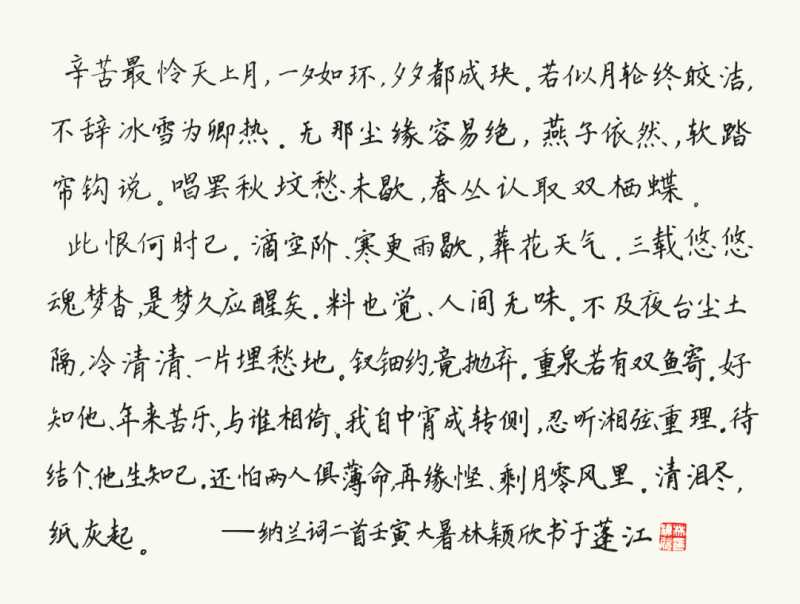 辛苦最怜天上月，一夕如环，夕夕都成玦。若似月轮终皎洁，
不辞冰雪为卿热。无那尘缘容易绝，燕子依然，软踏
帘钩说。唱罢秋坟愁未歇，春丛认取双栖蝶。
此恨何时已。滴空阶、寒更雨歇，葬花天气。三载悠悠
魂梦杳，是梦久应醒矣。料也觉、人间无味。不及夜台尘土
隔，冷清清、一片埋愁地。钗钿约，竟抛弃。重泉若有双鱼寄。好
知他、年来苦乐，与谁相倚。我自中宵成转侧，忍听湘弦重理。待
结个、他生知己。还怕两人俱薄命，再缘悭、剩月零风里。清泪尽，
纸灰起。 ——纳兰词二首壬寅大暑林颖欣书于蓬江